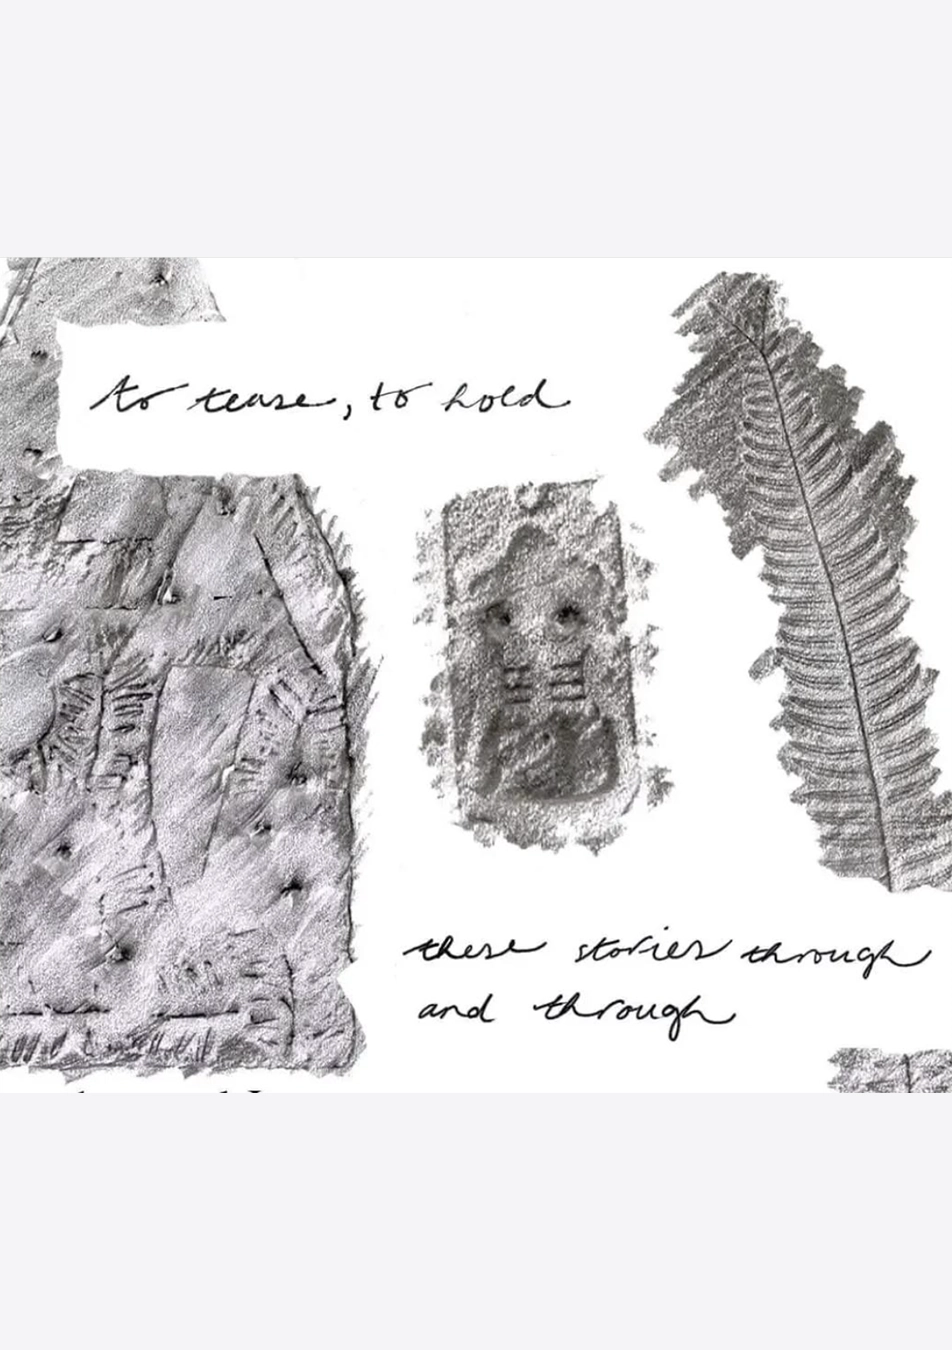 to tease, to hold
these stories through
and through